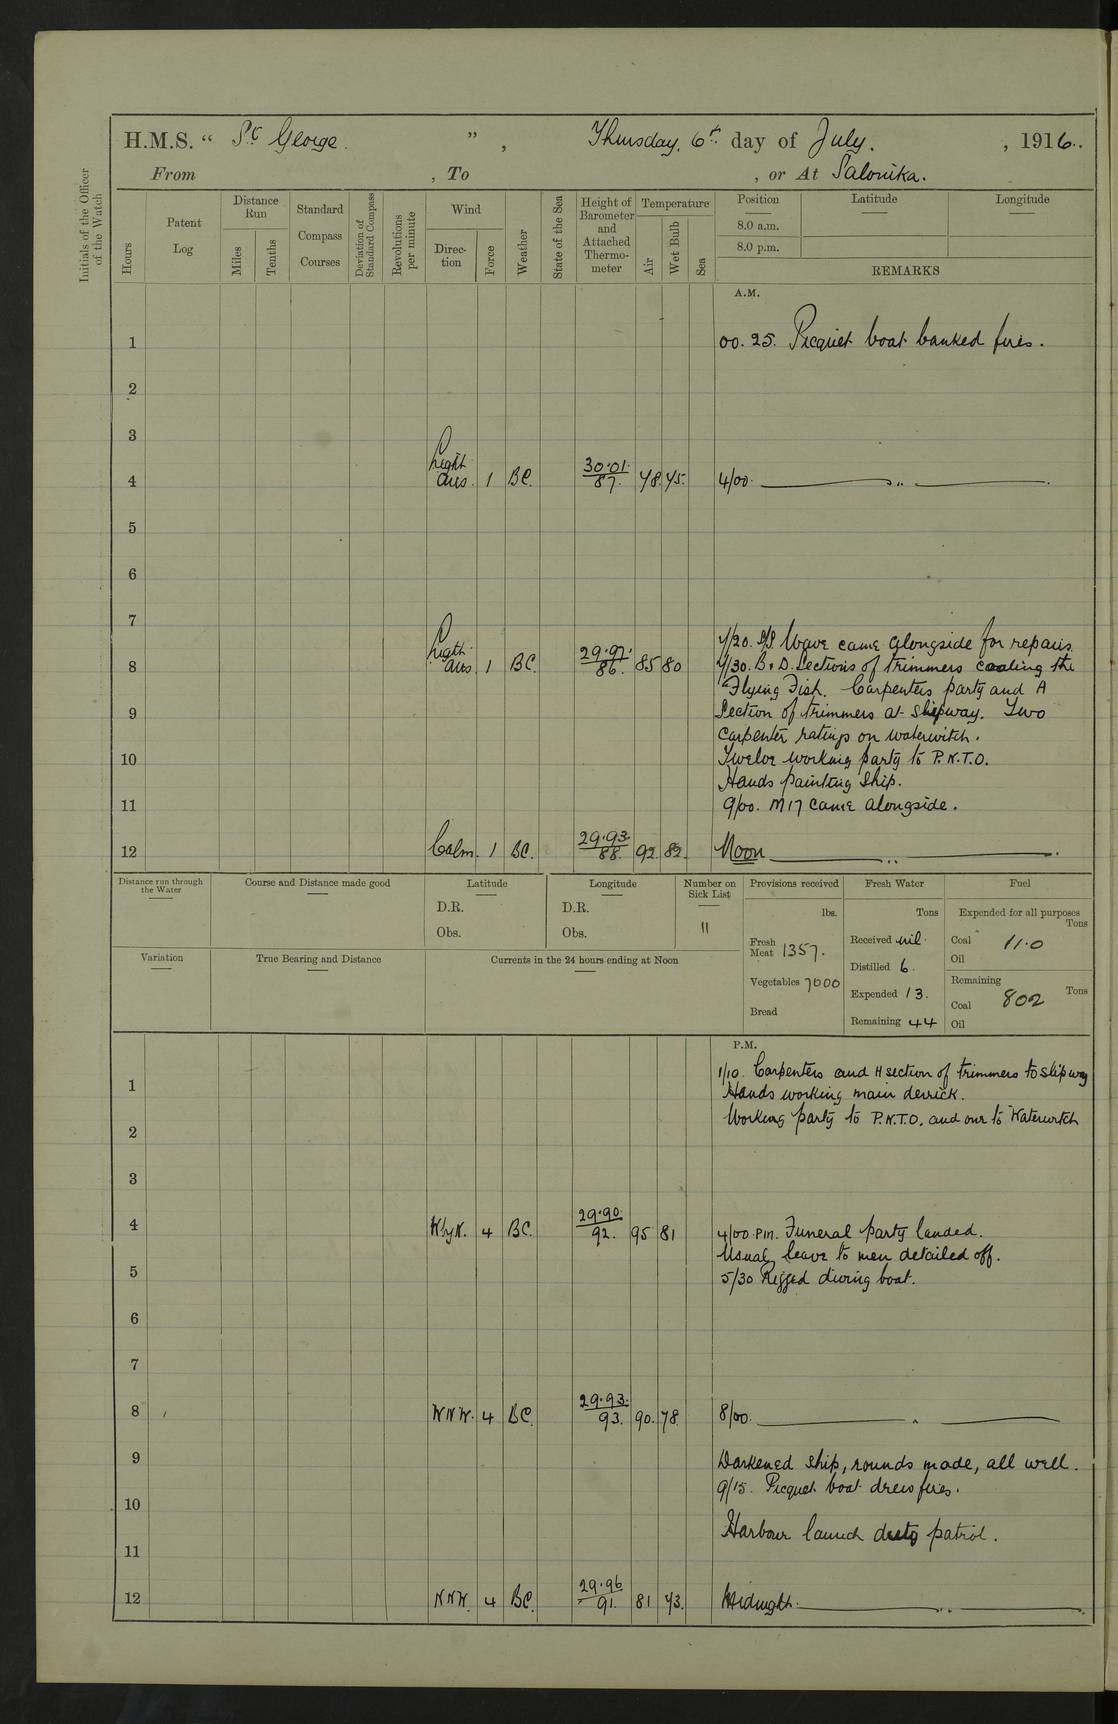 H.M.S. “ St George ” , Thursday, 6th day of July. , 1916.
From , To , or At Salonika.
Initials of the Officer of the Watch
Hours
Patent Log
Distance Run
Miles
Tenths
Standard Compass Courses
Deviation of Standard Compass
Revolutions per minute
Wind
Direction
Force
Weather
State of the Sea
Height of Barometer and Attached Thermometer
Temperature
Air
Wet Bulb
Sea
Position Latitude Longitude
8.0 a.m.
8.0 p.m.
REMARKS
A.M.
1 00.25. Picquet boat banked fires.
2
3
4 Light airs. 1 BC. 30.01. 87. 78. 75. 4/00. ——— ,, ———
5
6
7
7/20. S/S Wave came alongside for repairs.
8 Light airs. 1 BC. 29.97. 86. 85 80 7/30. B & D. Sections of trimmers coaling the
"Flying Fish. Carpenters party and A
9 Section of trimmers at slipway. Two
Carpenter ratings on waterwitch.
10 Twelve working party to P.N.T.O.
Hands painting Ship.
11 9/00. M17 came alongside.
12 Calm. 1 BC. 29.93. 88. 92. 82. Noon ——— ,, ———
Distance run through the Water
Course and Distance made good
Latitude
D.R.
Obs.
Longitude
D.R.
Obs.
Number on Sick List
11
Provisions received
lbs.
Fresh Meat 1357.
Vegetables 7000
Bread
Fresh Water
Tons
Received nil.
Distilled 6.
Expended 13.
Remaining 44
Fuel
Expended for all purposes
Tons
Coal 11.0
Oil
Remaining
Tons
Coal 802
Oil
Variation
True Bearing and Distance
Currents in the 24 hours ending at Noon
P.M.
1/10. Carpenters and H section of trimmers to slipway
1 Hands working main derrick.
Working party to P.N.T.O. and one to Waterwitch
2
3
4 NbyN. 4 BC. 29.90. 92. 95 81 4/00 P.M. Funeral party landed.
Usual leave to men detailed off.
5 5/30 Rigged diving boat.
6
7
8 NNW. 4 BC. 29.93. 93. 90. 78. 8/00. ——— ,, ———
9 Darkened ship, rounds made, all well.
9/15. Picquet boat drew fires.
10
Harbour launch duty patrol.
11
12 NNW. 4 BC. 29.96 91. 81 73. Midnight. ——— ,, ———